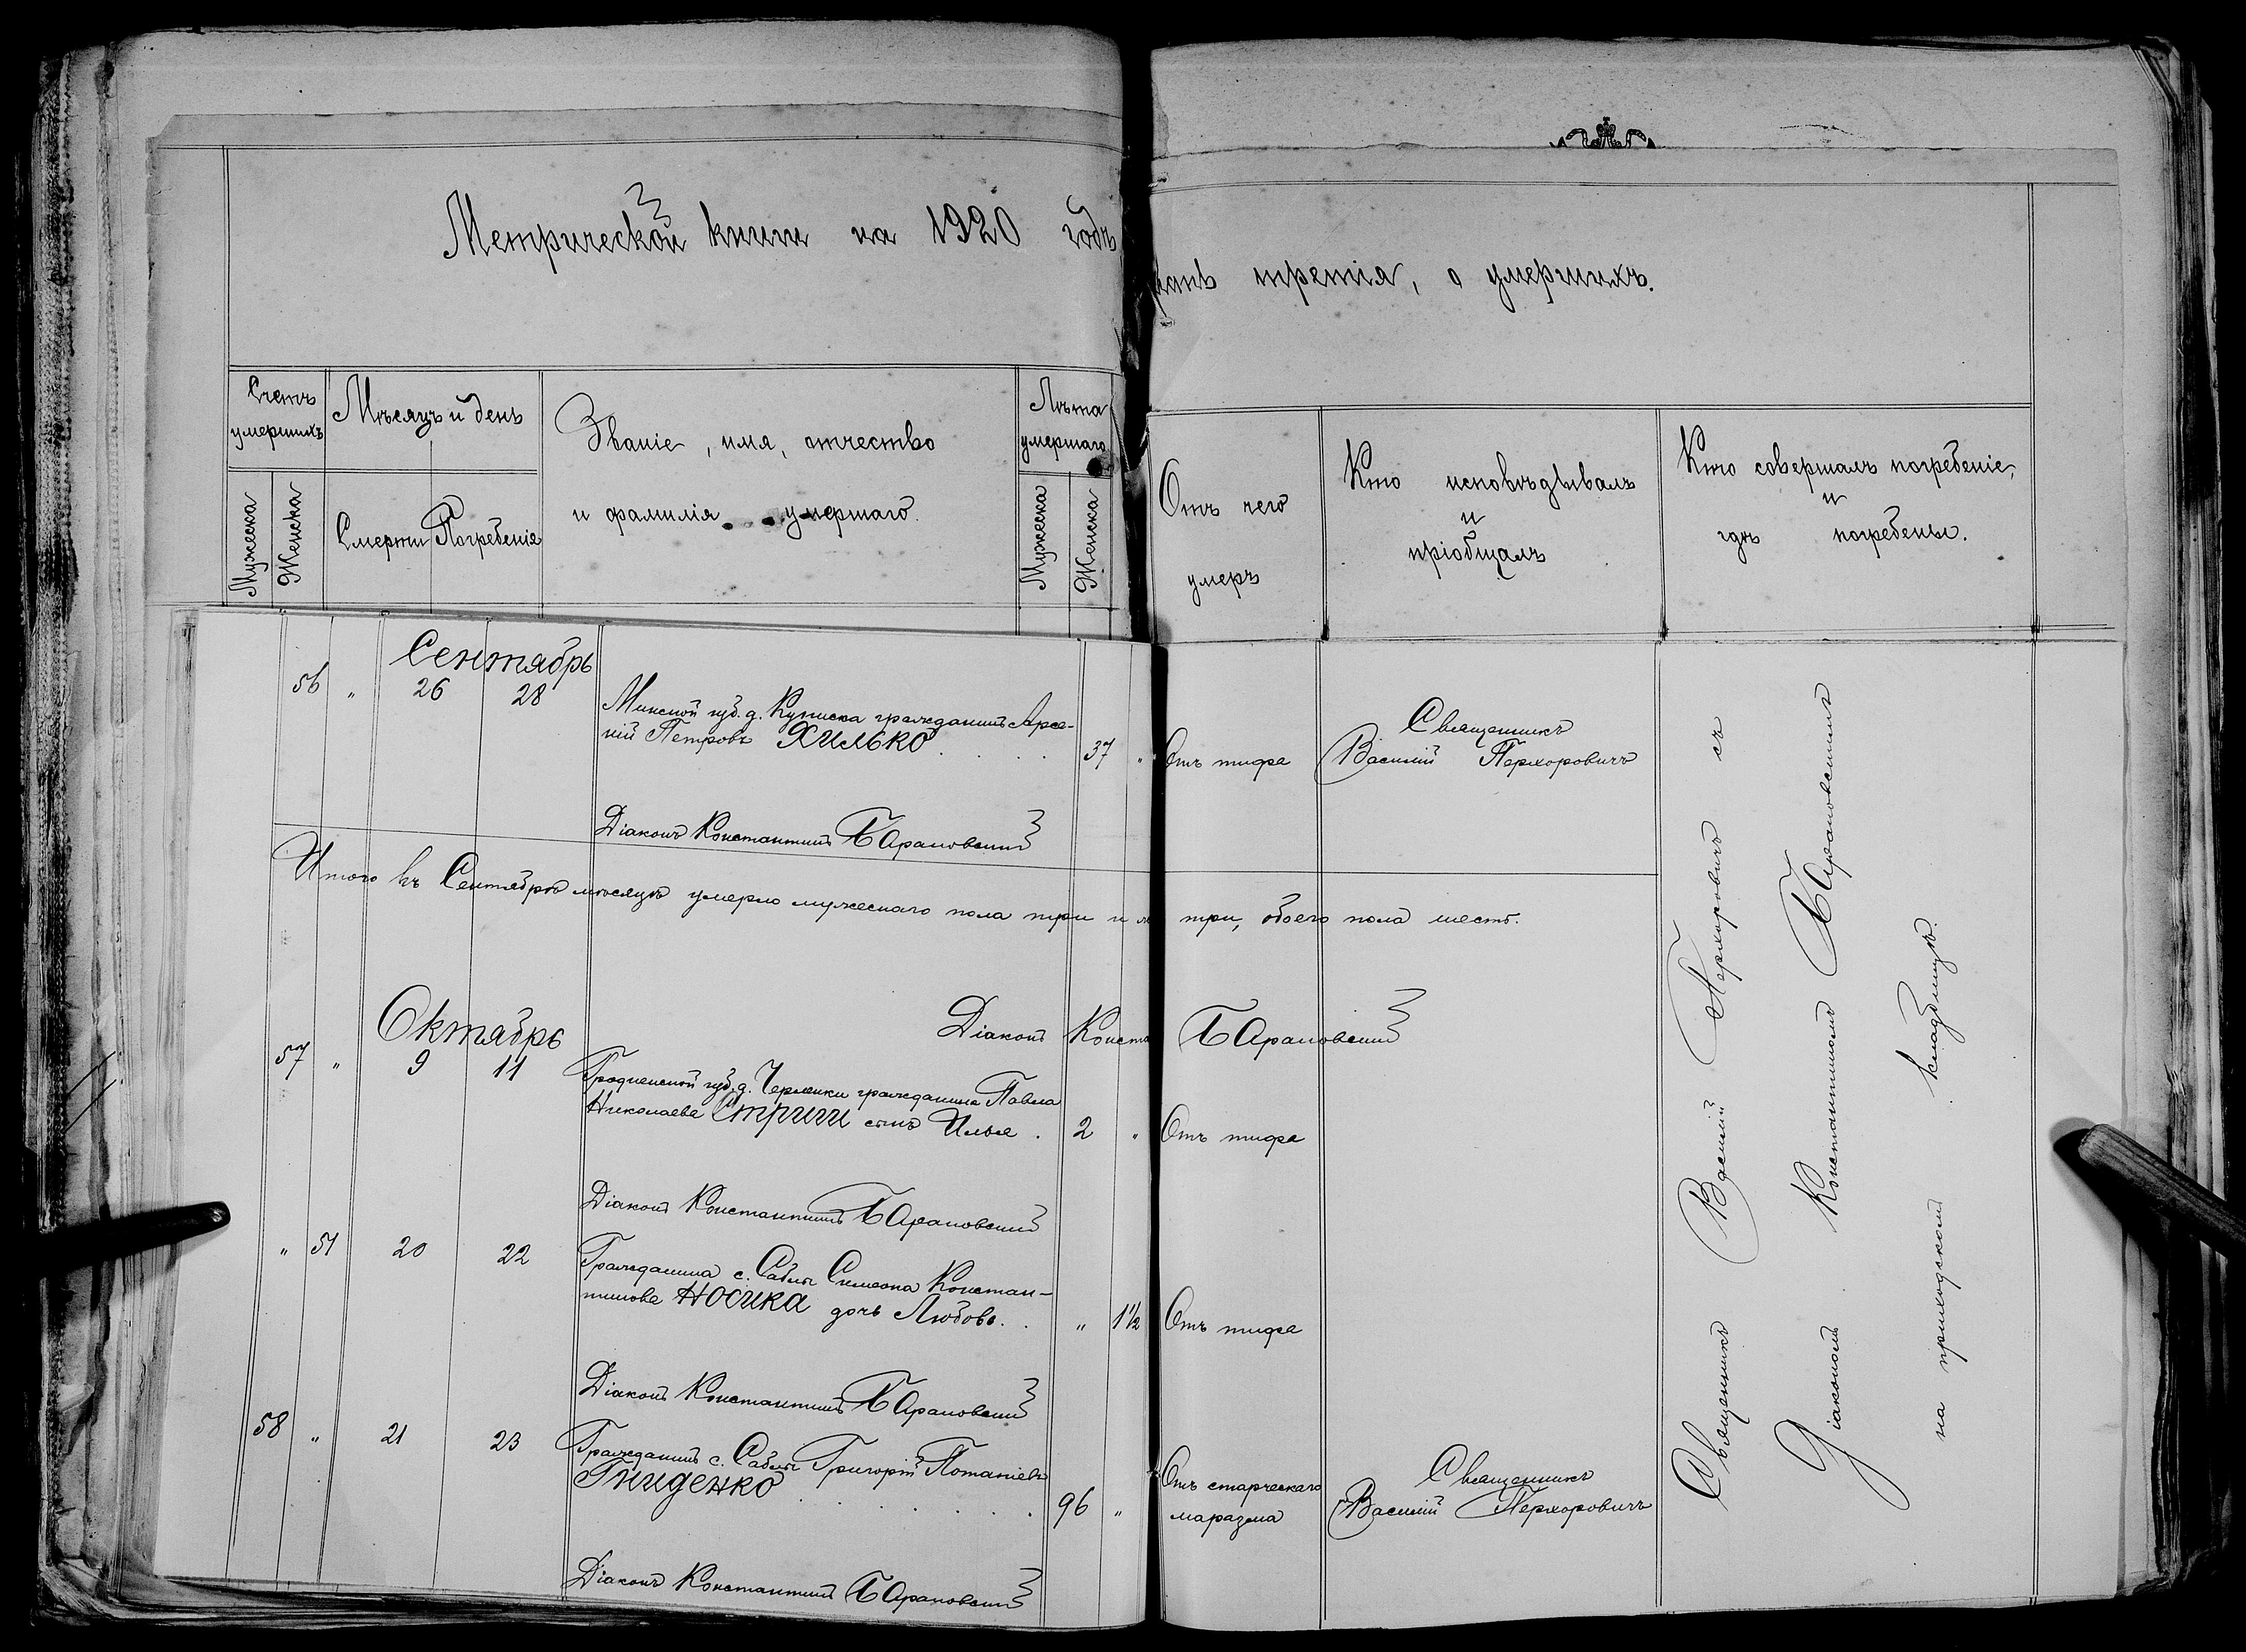 Метрической книги на 1920 годъ
часть третія, о умершихъ.
Счетъ
умершихъ
Мужеска
Женска
Мѣсяцъ и день
Смерти
Погребенія
Званіе, имя, отчество
и фамилія умершаго.
Лѣта
умершаго
Мужеска
Женска
Отъ чего
умеръ
Кто исповѣдывалъ
и
пріобщалъ
Кто совершалъ погребеніе,
и
гдѣ погребены.
Сентябрь
56 " 26 28
Минской губ. д. Куписка гражданинъ Арсе-
ній Петровъ ХИЛЬКО . . . . 37 " Отъ тифа
Священникъ
Василій Перхоровичъ
Діаконъ Константинъ Барановскій
Итого въ Сентябрѣ мѣсяцѣ умерло мужескаго пола три и три, обоего пола шесть.
Діаконъ Конста Барановскій
Октябрь
57 " 9 11
Гродненской губ. д. Черленки гражданина Павла
Николаева Стриги сынъ Илья . 2 " Отъ тифа
Діаконъ Константинъ Барановскій
" 51 20 22
Гражданина с. Саблы Симеона Констан-
тинова НОСИКА дочь Любовь . . " 1 1/2 Отъ тифа
Діаконъ Константинъ Барановскій
58 " 21 23
Гражданинъ с. Саблы Григорій Потапіевъ
Гниденко . . . . . . 96 "
Отъ старческаго
маразма
Священникъ
Василій Перхоровичъ
Діаконъ Константинъ Барановскій
Священникъ Василій Перхоровичъ съ
Діакономъ Константиномъ Барановскимъ
на приходскомъ кладбищѣ.